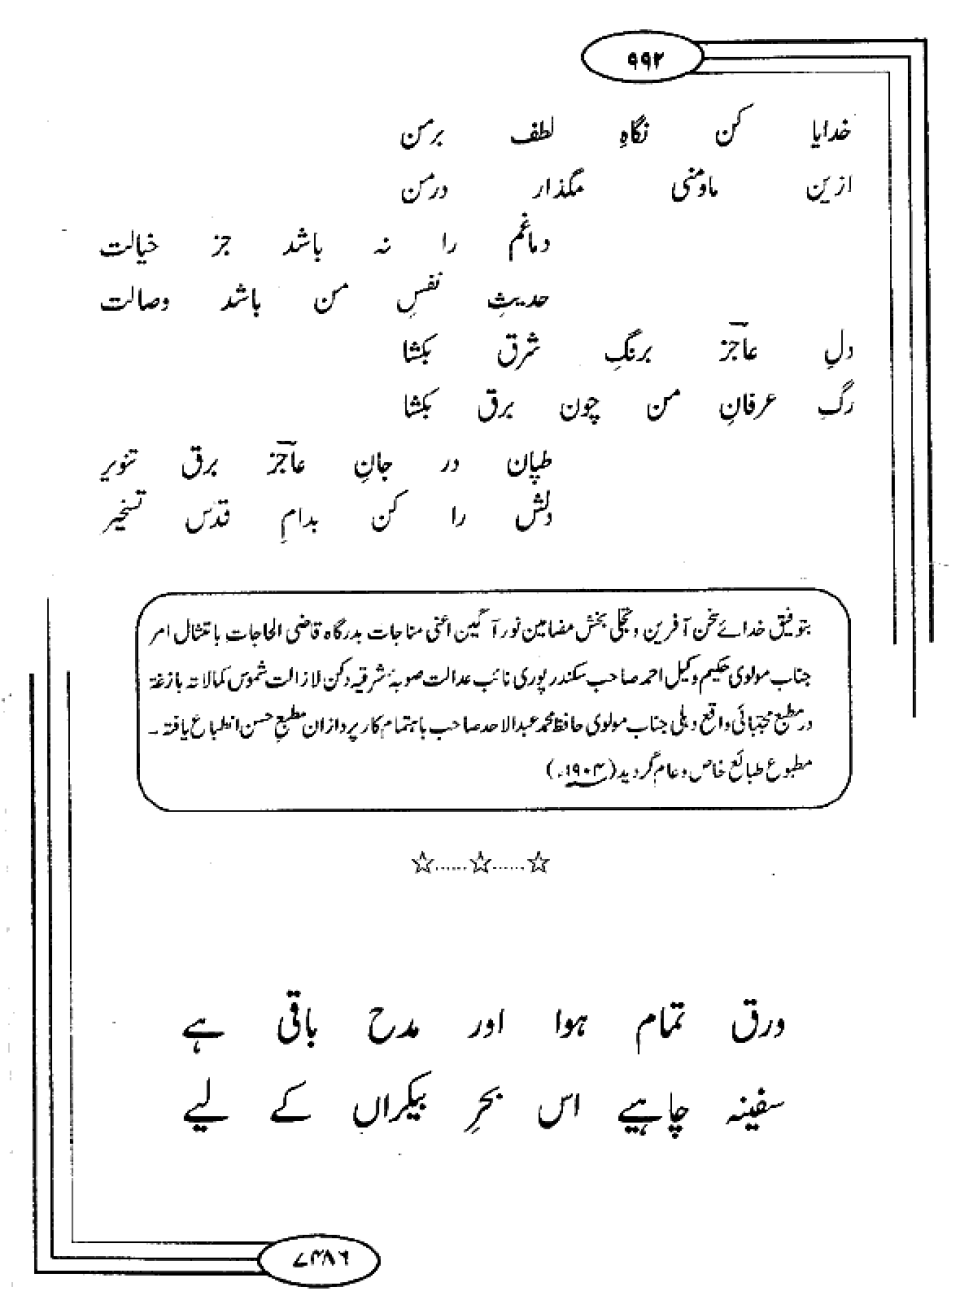 ۹۹۲
خدایا کن نگاہِ لطف برمن
ازین ماومنی مگذار درمن
دماغم را نہ باشد جز خیالت
حدیثِ نفسِ من باشد وصالت
دلِ عاجز برنگِ شرق بکشا
رگِ عرفانِ من چون برق بکشا
طپان در جانِ عاجز برق تنویر
دلش را کن بدامِ قدس تسخیر
بتوفیق خدائے سخن آفرین و تجلی بخش مضامین نور آگین اعنی مناجات بدرگاہ قاضی الحاجات بامتثال امر
جناب مولوی حکیم وکیل احمد صاحب سکندرپوری نائب عدالت صوبۂ شرقیہ دکن لازالت شموس کمالاتہ بازغۃ
در مطبع مجتبائی واقع دہلی جناب مولوی حافظ محمد عبدالاحد صاحب باہتمام کارپردازان مطبع حسن انطباع یافتہ ۔
مطبوع طبائع خاص و عام گردید (۱۹۰۳ء)
☆......☆......☆
ورق تمام ہوا اور مدح باقی ہے
سفینہ چاہیے اس بحرِ بیکراں کے لیے